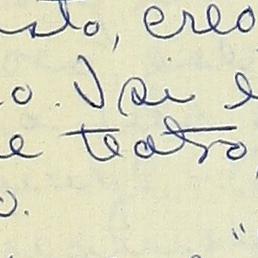 sto, creo
o. Vai e
e teatro,
o.
"